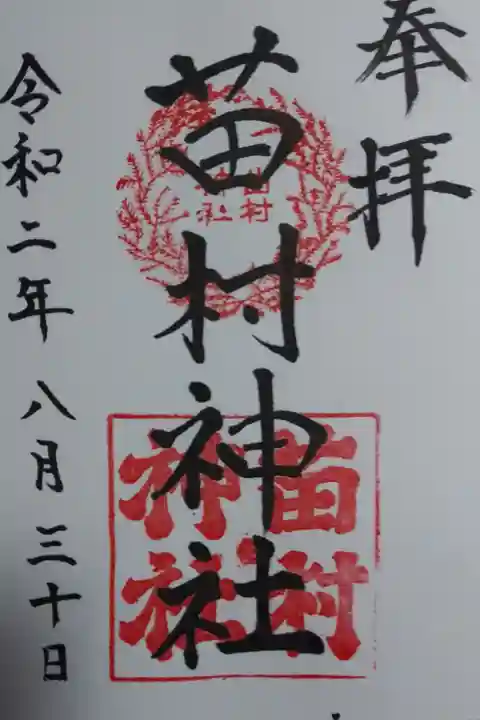 奉拝
苗村神社
苗村
神社
苗村
神社
令和二年 八月三十日